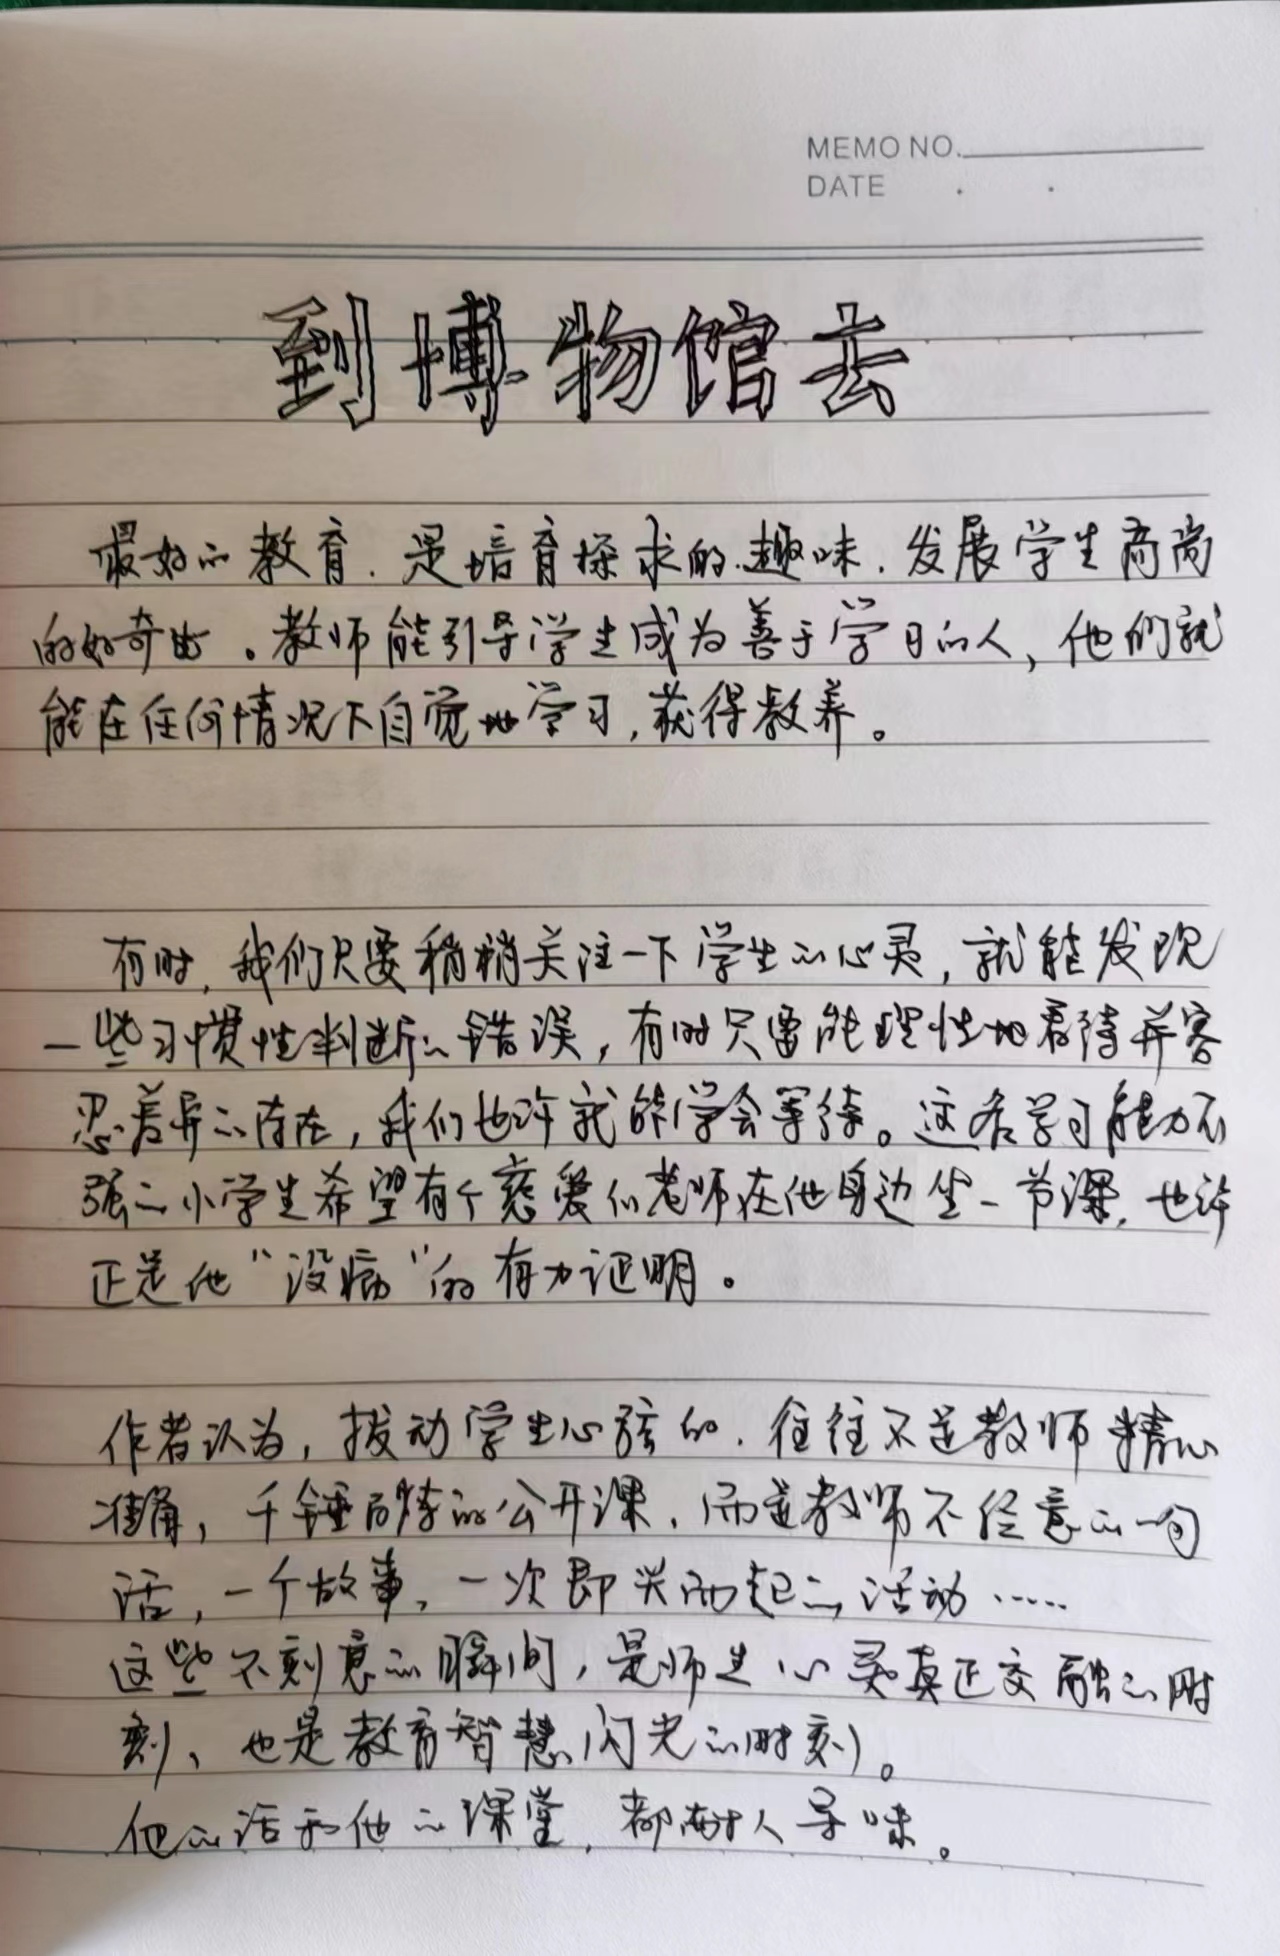 MEMO NO.
DATE . .
到博物馆去
最好的教育,是培育探求的趣味,发展学生高尚
的好奇曲。教师能引导学生成为善于学习的人,他们就
能在任何情况下自觉地学习,获得教养。
有时,我们只要稍稍关注一下学生的心灵,就能发现
一些习惯性判断的错误,有时只要能理性地看待并容
忍差异的存在,我们也许就能学会等待。这名学习能力不
强的小学生希望有个慈爱的老师在他身边坐一节课,也许
正是他“没病”的有力证明。
作者认为,拨动学生心弦的,往往不是教师精心
准备,千锤百炼的公开课,而是教师不经意的一句
话,一个故事,一次即兴而起的活动……
这些不刻意的瞬间,是师生心灵真正交融的时
刻、也是教育智慧闪光的时刻。
他的话和他的课堂,都耐人寻味。